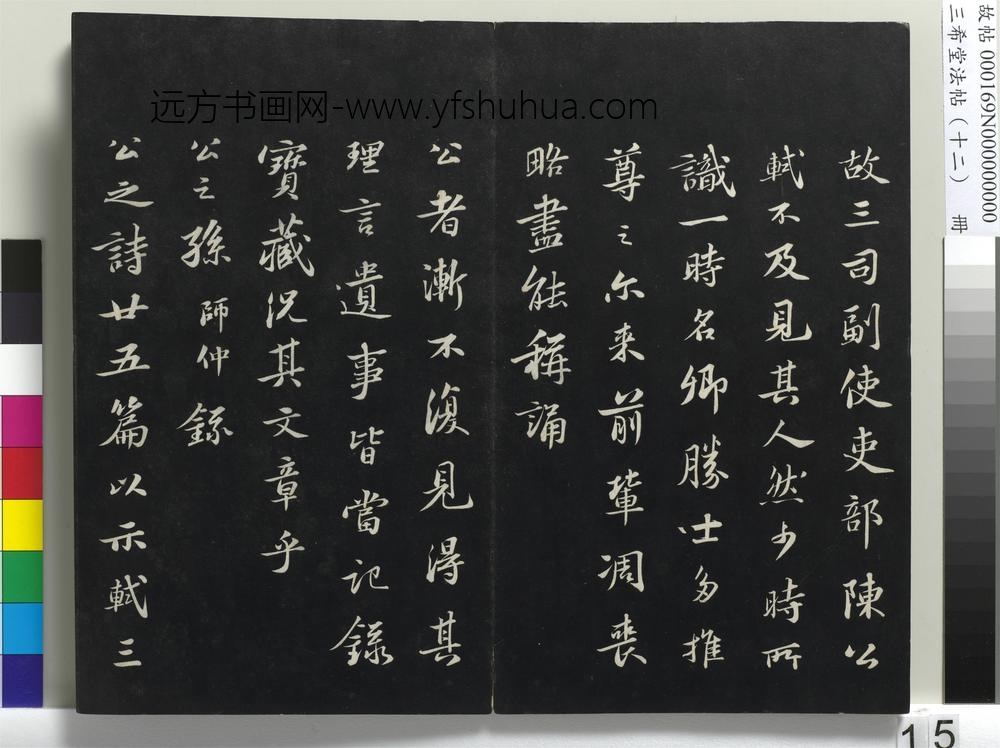 故三司副使吏部陳公
軾不及見其人然少時所
識一時名卿勝士多推
尊之尓来前輩凋喪
略盡能稱誦
公者漸不復見得其
理言遺事皆當記錄
寶藏況其文章乎
公之孫師仲錄
公之詩廿五篇以示軾三
远方书画网-www.yfshuhua.com
故帖 000169N000000000
三希堂法帖(十二) 冊
15